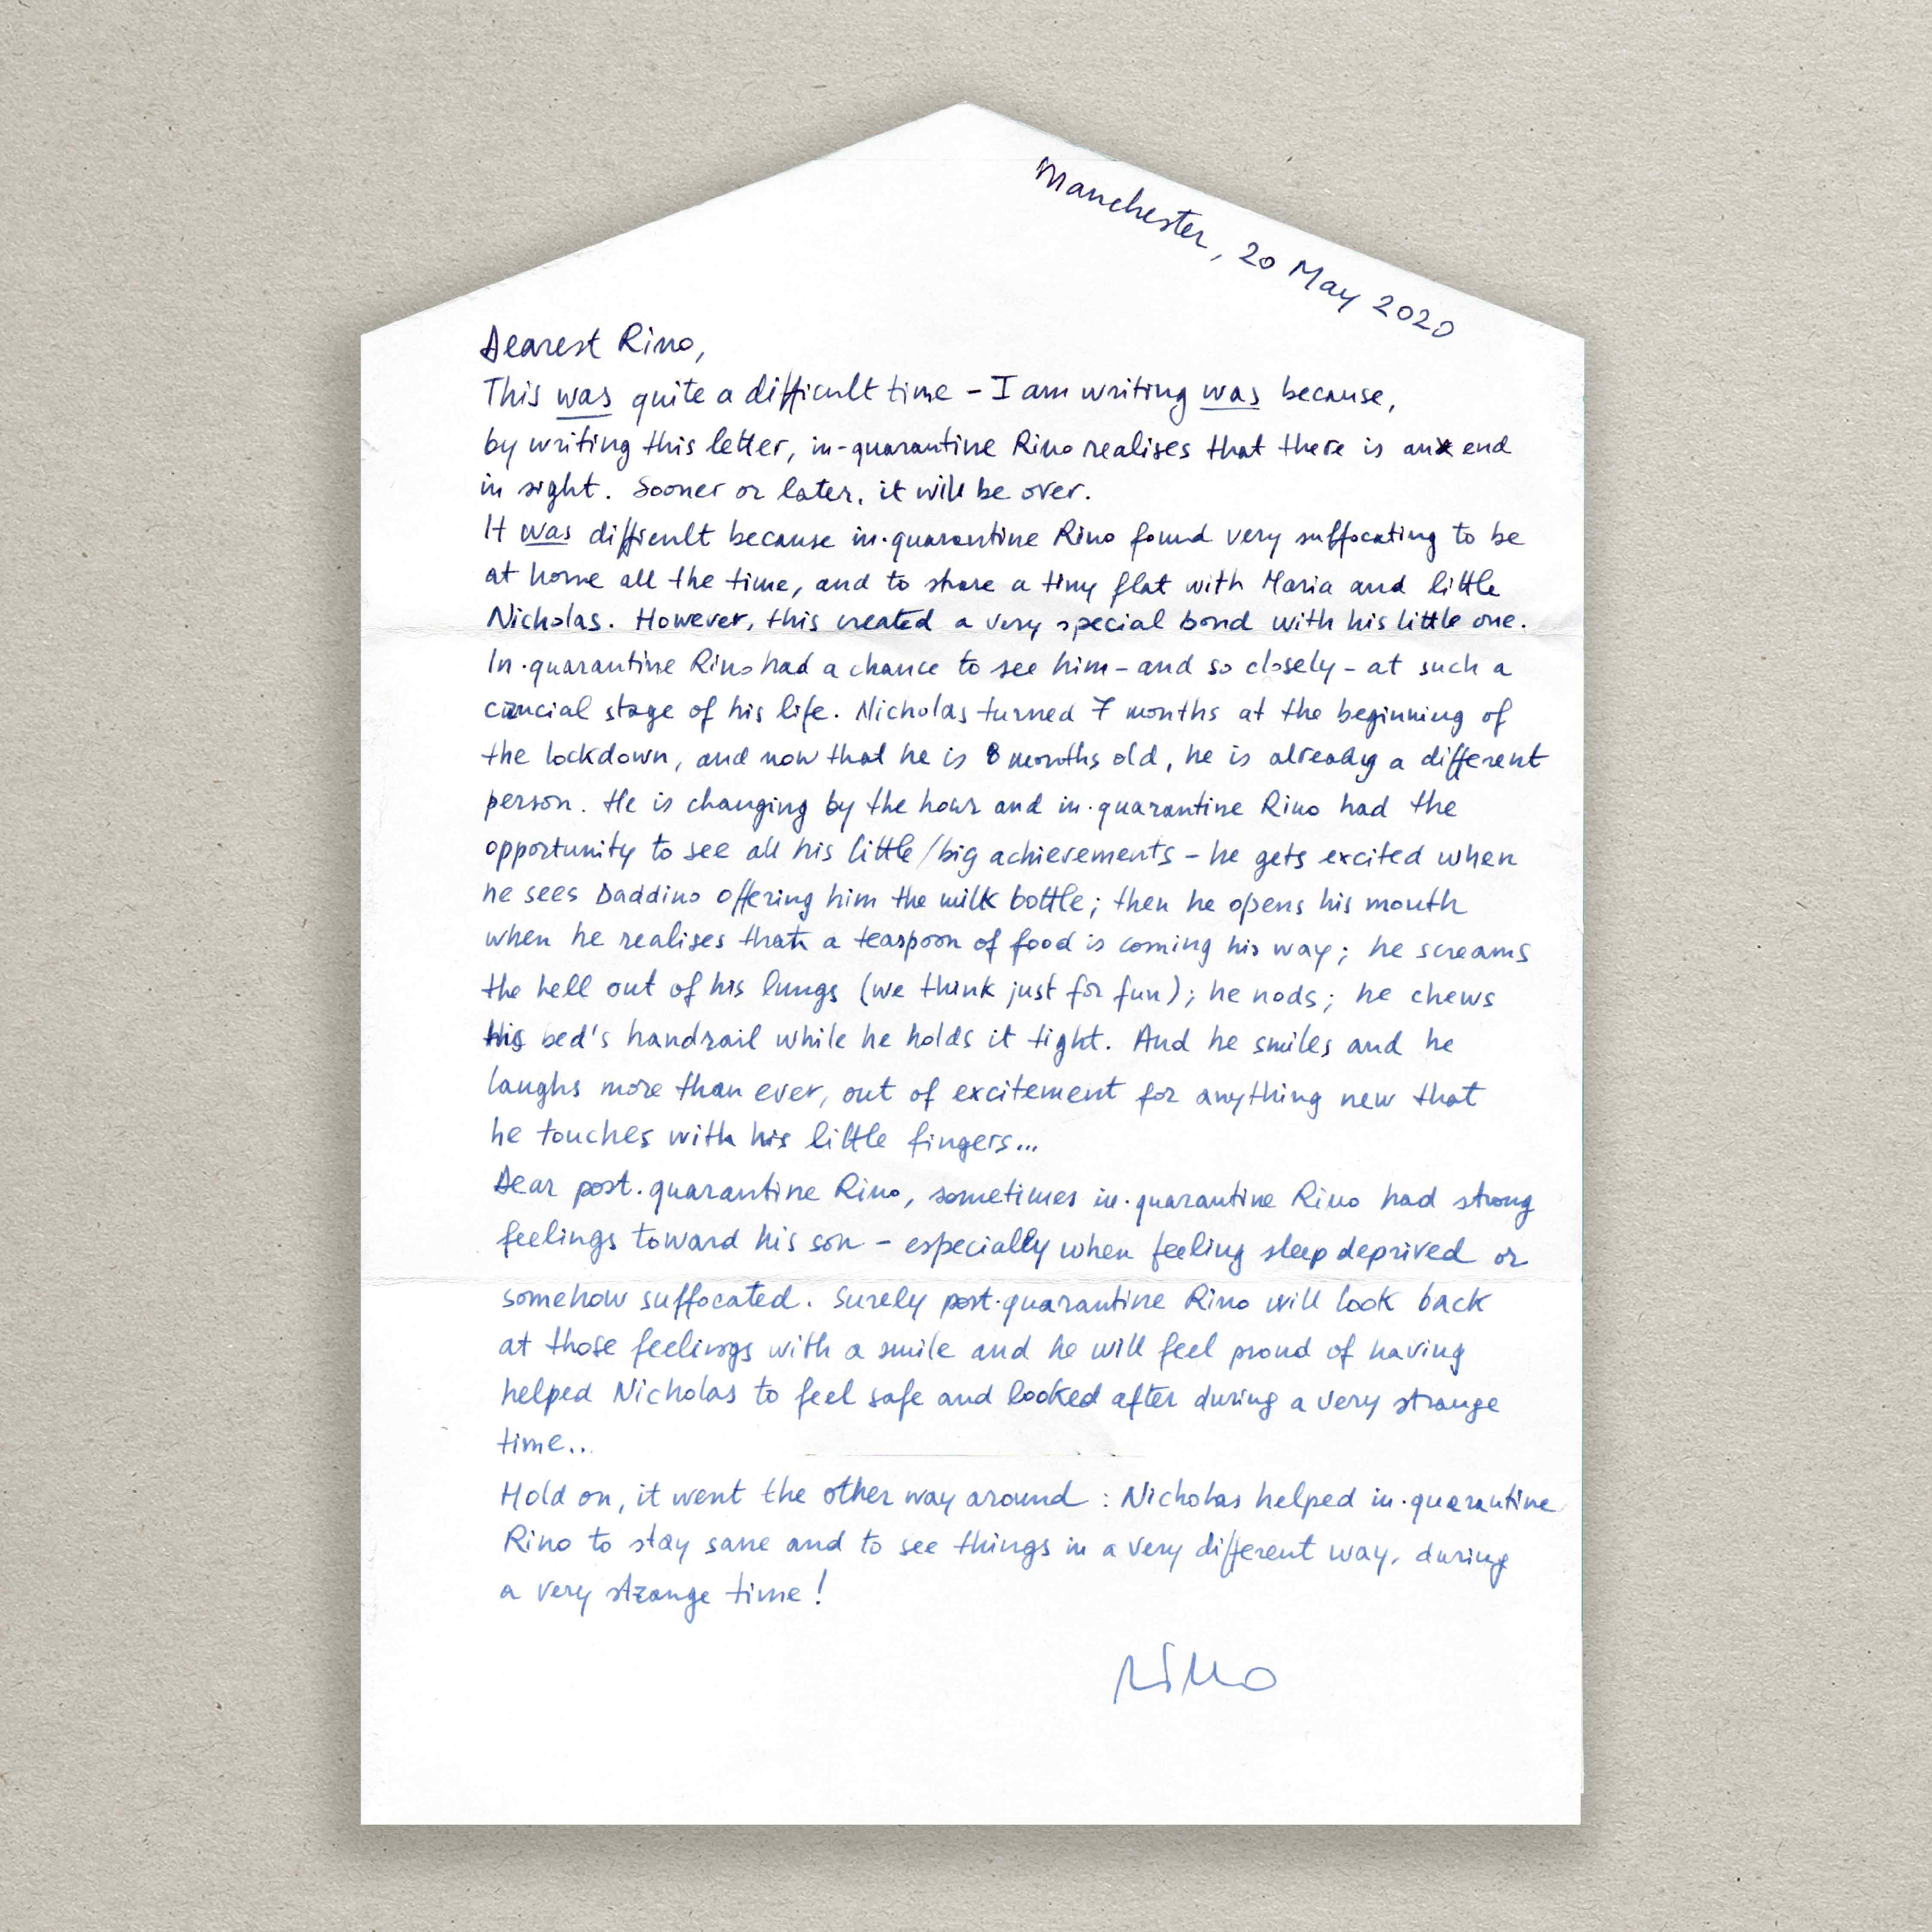 Manchester, 20 May 2020
Dearest Rino,
This was quite a difficult time – I am writing was because,
by writing this letter, in-quarantine Rino realises that there is an end
in sight. Sooner or later, it will be over.
It was difficult because in-quarantine Rino found very suffocating to be
at home all the time, and to share a tiny flat with Maria and little
Nicholas. However, this created a very special bond with his little one.
In-quarantine Rino had a chance to see him – and so closely – at such a
crucial stage of his life. Nicholas turned 7 months at the beginning of
the lockdown, and now that he is 8 months old, he is already a different
person. He is changing by the hour and in-quarantine Rino had the
opportunity to see all his little/big achievements – he gets excited when
he sees Daddino offering him the milk bottle; then he opens his mouth
when he realises that a teaspoon of food is coming his way; he screams
the hell out of his lungs (we think just for fun); he nods; he chews
his bed's handrail while he holds it tight. And he smiles and he
laughs more than ever, out of excitement for anything new that
he touches with his little fingers...
Dear post-quarantine Rino, sometimes in-quarantine Rino had strong
feelings toward his son – especially when feeling sleep deprived or
somehow suffocated. Surely post-quarantine Rino will look back
at those feelings with a smile and he will feel proud of having
helped Nicholas to feel safe and looked after during a very strange
time...
Hold on, it went the other way around: Nicholas helped in-quarantine
Rino to stay sane and to see things in a very different way, during
a very strange time!
Rino